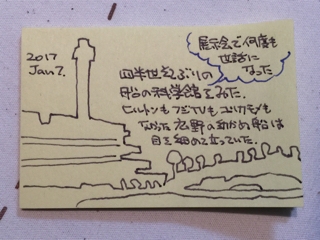 2017
Jan 7.
展示会で何度も
世話に
なった
四半世紀ぶりの
船の科学館をみた。
ヒルトンもフジTVもユリカモメも
なかった 広野の動かぬ船は
目を細めて立っていた。